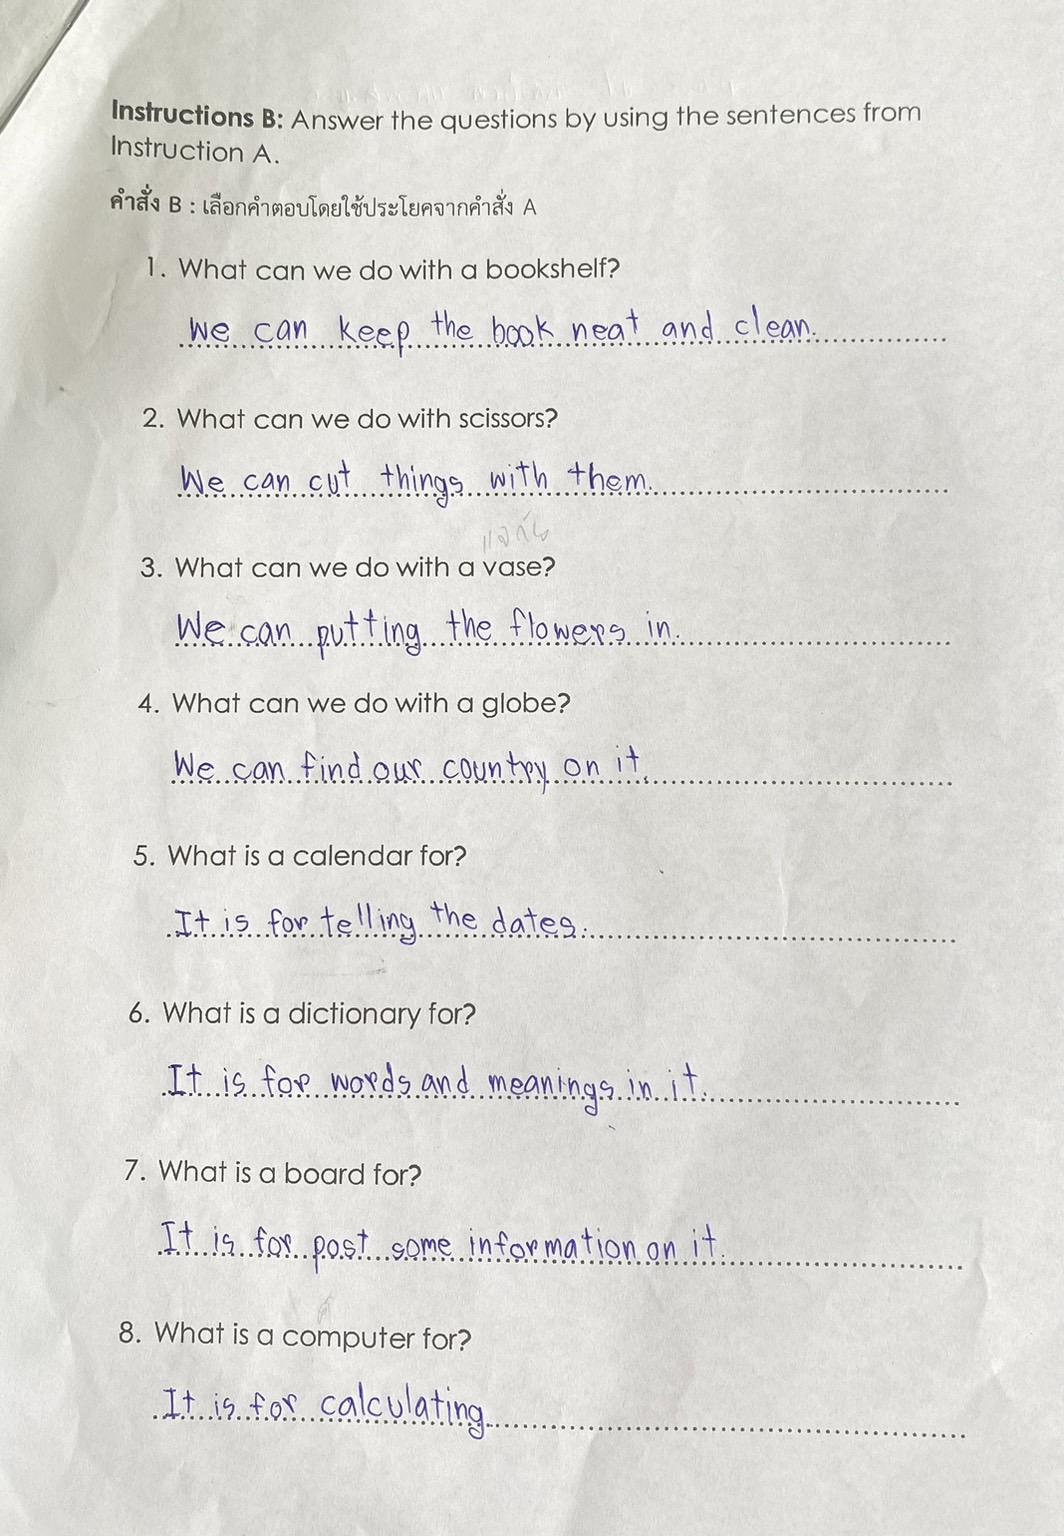 Instructions B: Answer the questions by using the sentences from
Instruction A.
คำสั่ง B : เลือกคำตอบโดยใช้ประโยคจากคำสั่ง A
1. What can we do with a bookshelf?
We can keep the book neat and clean.
2. What can we do with scissors?
We can cut things with them.
แจกัน
3. What can we do with a vase?
We can putting the flowers in.
4. What can we do with a globe?
We can find our country on it.
5. What is a calendar for?
It is for telling the dates.
6. What is a dictionary for?
It is for words and meanings in it.
7. What is a board for?
It is for post some information on it.
8. What is a computer for?
It is for calculating.